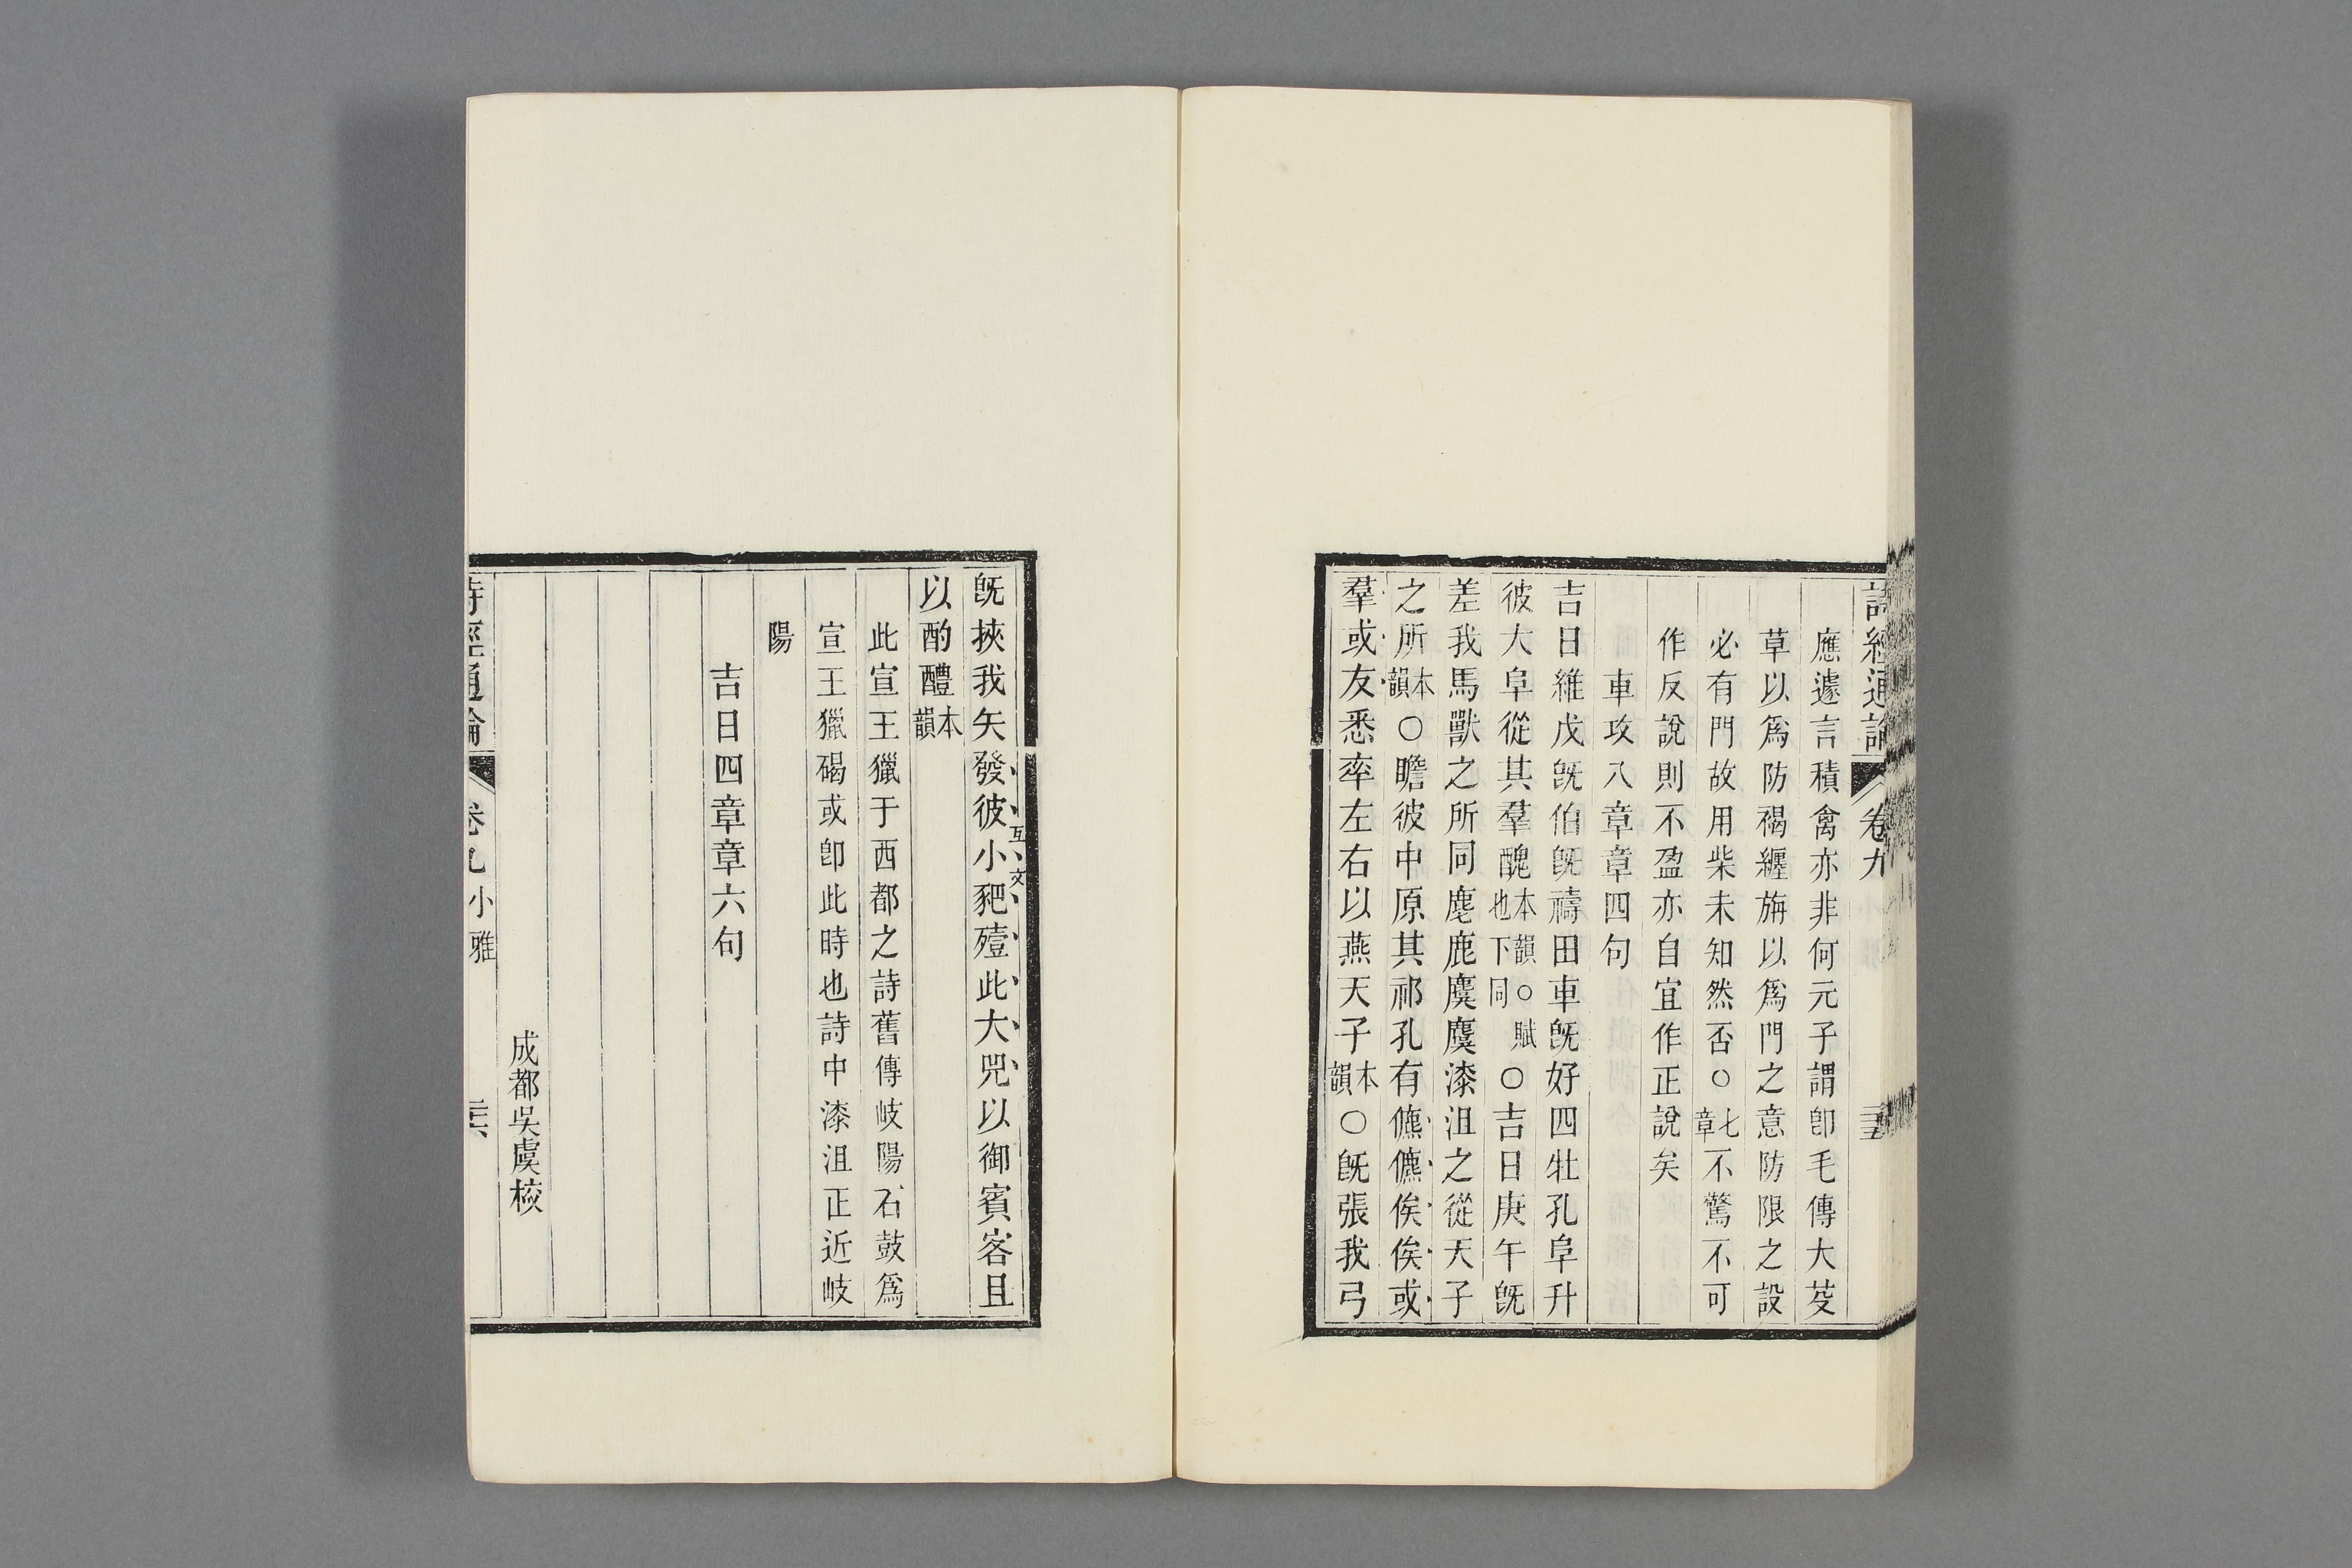 詩經通論 卷九 三五
應遽言積禽亦非何元子謂卽毛傳大芟
草以爲防褐纏旃以爲門之意防限之設
必有門故用柴未知然否○七章不驚不可
作反說則不盈亦自宜作正說矣
車攻八章章四句
吉日維戊旣伯旣禱田車旣好四牡孔阜升
彼大阜從其羣醜本韻○賦也下同○吉日庚午旣
差我馬獸之所同麀鹿麌麌漆沮之從天子
之所本韻○瞻彼中原其祁孔有儦儦俟俟或
羣或友悉率左右以燕天子本韻○旣張我弓
旣挾我矢發彼小豝殪此大兕以御賓客且
互文
以酌醴本韻
此宣王獵于西都之詩舊傳岐陽石鼓爲
宣王獵碣或卽此時也詩中漆沮正近岐
陽
吉日四章章六句
成都吳虞校
詩經通論 卷九 小雅 三六